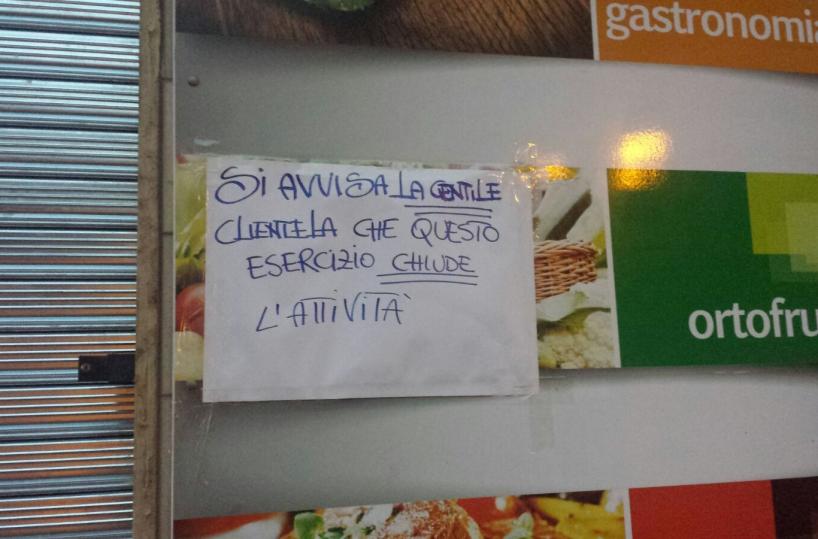 gastronomia
Si AVVISA LA GENTILE
CLIENTELA CHE QUESTO
ESERCIZIO CHIUDE
L'ATTiViTÀ
ortofru